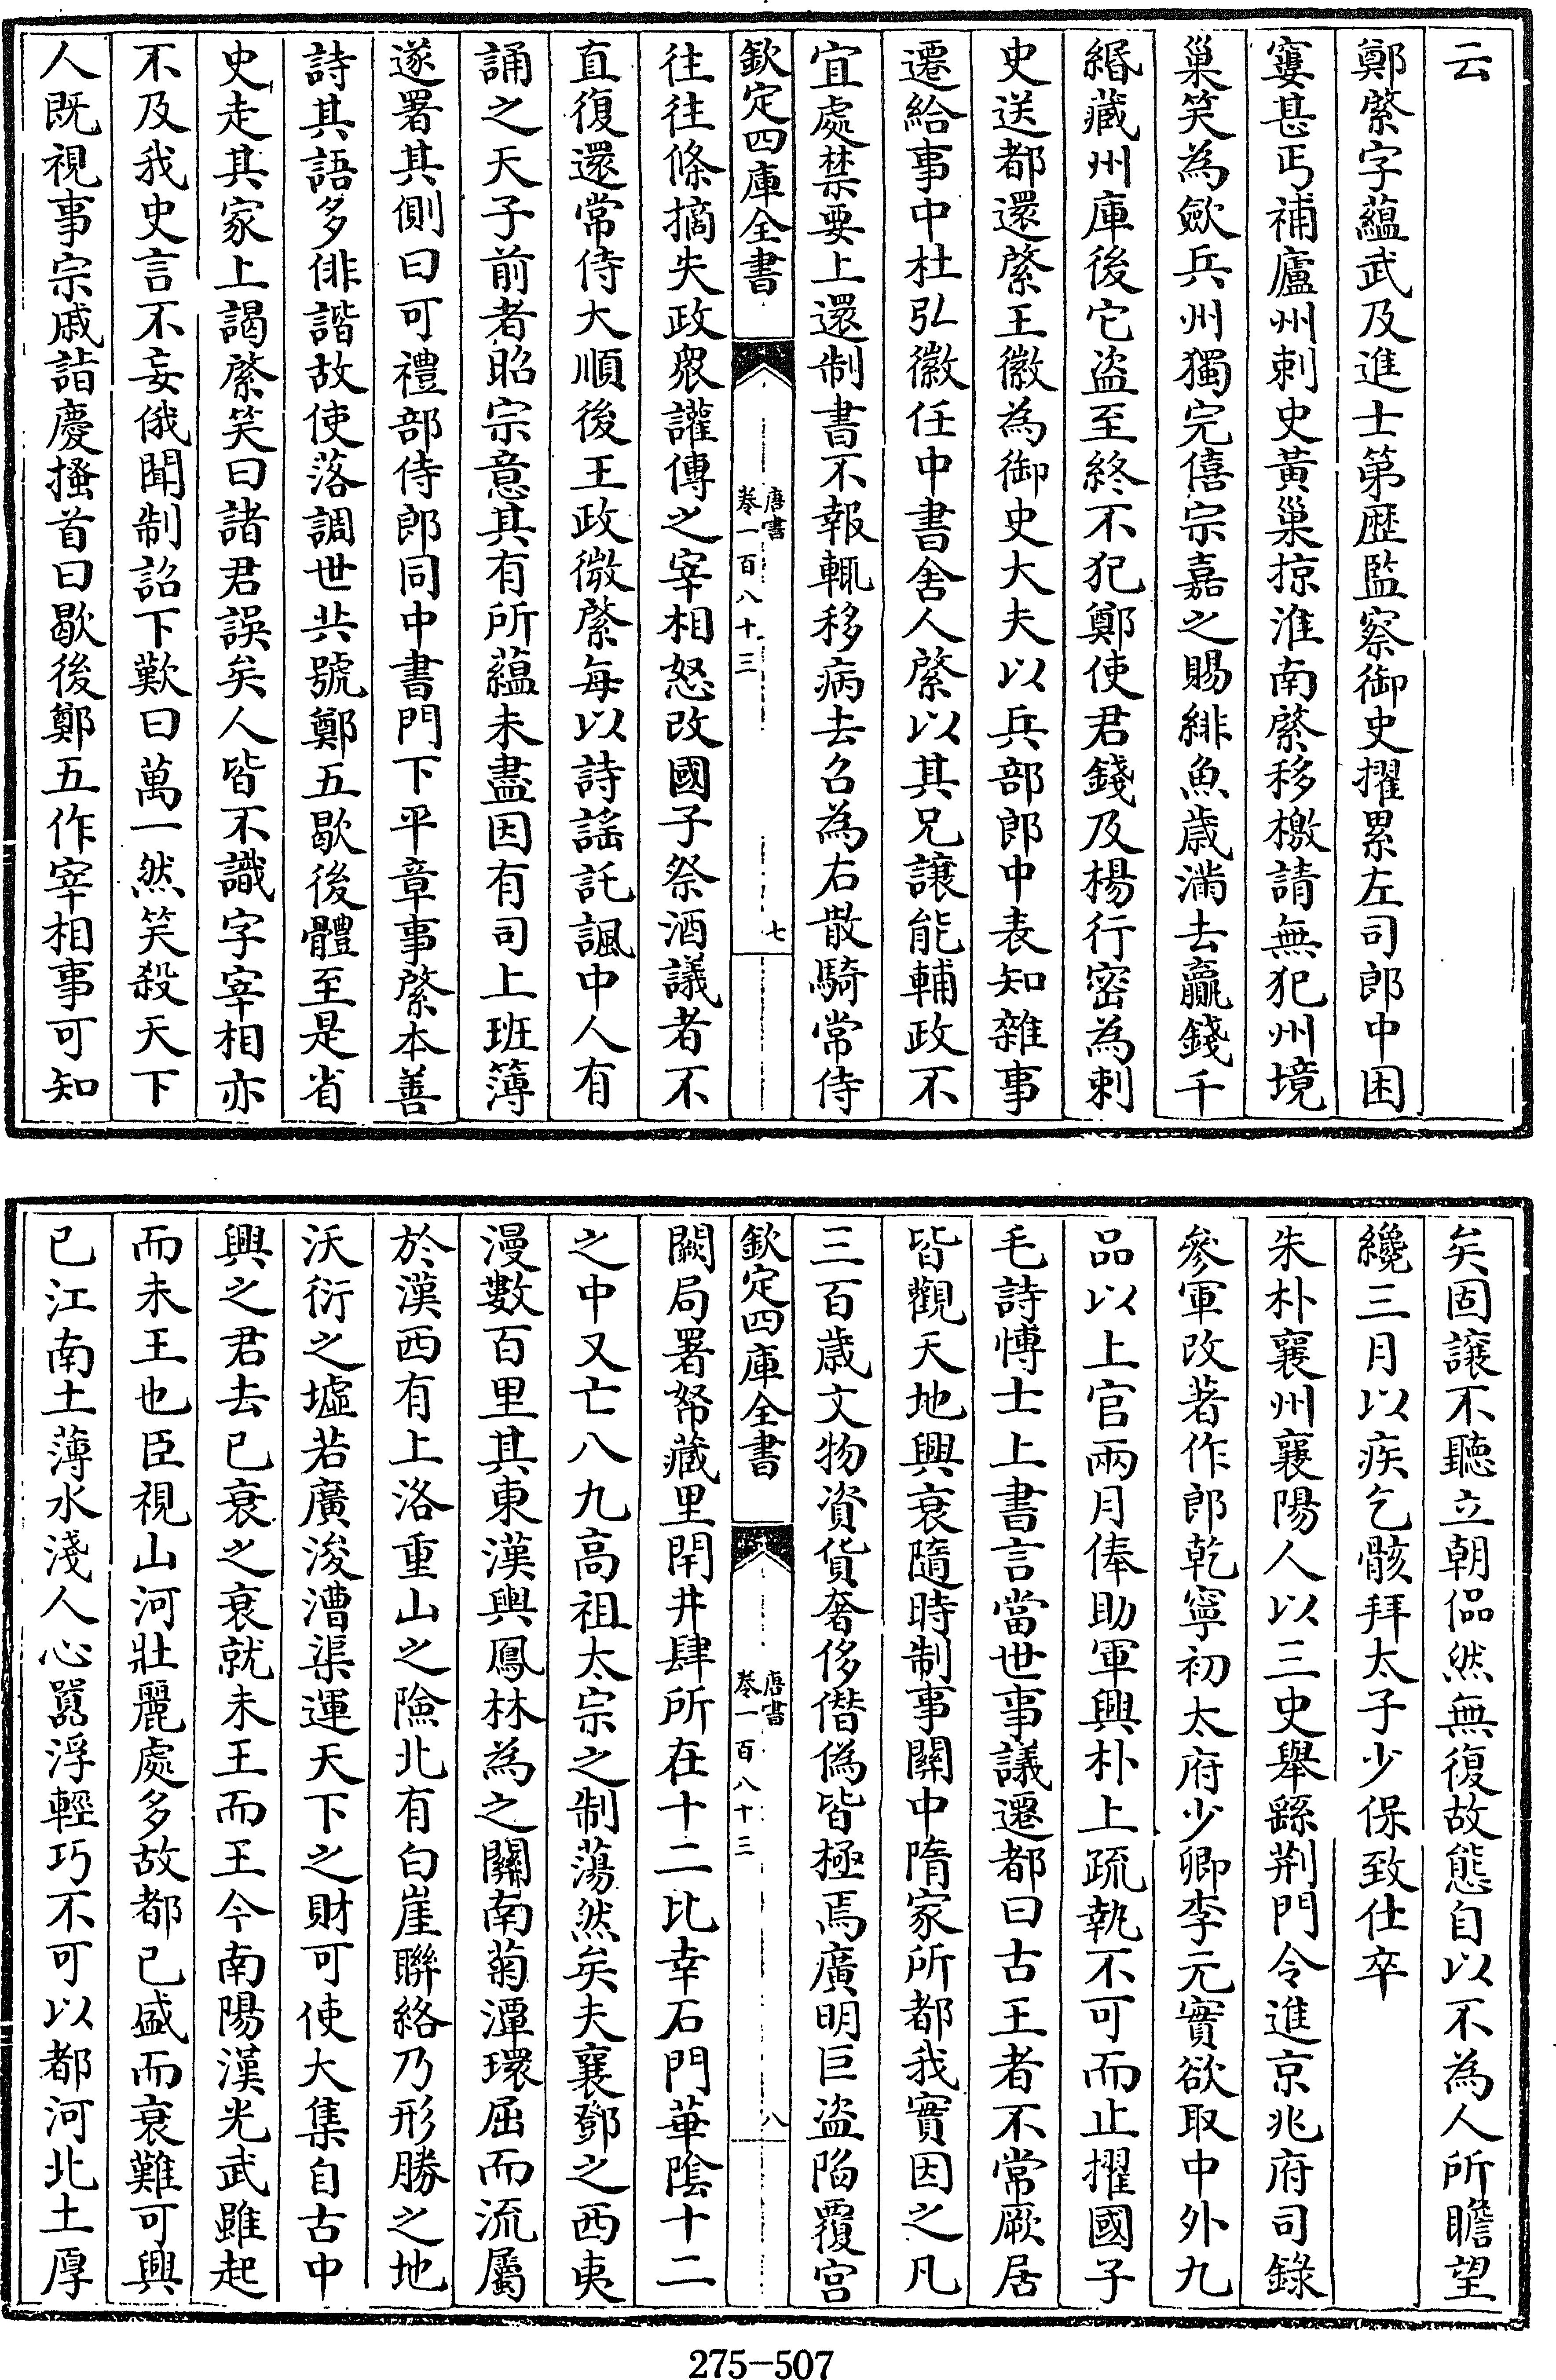 云
鄭綮字蘊武及進士第歴監察御史擢累左司郎中困
窶甚丐補廬州刺史黃巢掠淮南綮移檄請無犯州境
巢笑為斂兵州獨完僖宗嘉之賜緋魚歲滿去贏錢千
緡藏州庫後它盜至終不犯鄭使君錢及楊行密為刺
史送都還綮王徽為御史大夫以兵部郎中表知雜事
遷給事中杜弘徽任中書舍人綮以其兄讓能輔政不
宜處禁要上還制書不報輒移病去召為右散騎常侍
欽定四庫全書
唐書
卷一百八十三
七
往往條摘失政衆讙傳之宰相怒改國子祭酒議者不
直復還常侍大順後王政微綮每以詩謠託諷中人有
誦之天子前者昭宗意其有所蘊未盡因有司上班簿
遂署其側曰可禮部侍郎同中書門下平章事綮本善
詩其語多俳諧故使落調世共號鄭五歇後體至是省
史走其家上謁綮笑曰諸君誤矣人皆不識字宰相亦
不及我史言不妄俄聞制詔下歎曰萬一然笑殺天下
人既視事宗戚詣慶搔首曰歇後鄭五作宰相事可知
矣固讓不聽立朝偘然無復故態自以不為人所瞻望
纔三月以疾乞骸拜太子少保致仕卒
朱朴襄州襄陽人以三史舉繇荆門令進京兆府司錄
參軍改著作郎乾寧初太府少卿李元實欲取中外九
品以上官兩月俸助軍興朴上疏執不可而止擢國子
毛詩博士上書言當世事議遷都曰古王者不常厥居
皆觀天地興衰隨時制事關中隋家所都我實因之凡
三百歲文物資貨奢侈僭偽皆極焉廣明巨盜陷覆宫
欽定四庫全書
唐書
卷一百八十三
八
闕局署帑藏里閈井肆所在十二比幸石門華陰十二
之中又亡八九高祖太宗之制蕩然矣夫襄鄧之西夷
漫數百里其東漢輿鳳林為之關南菊潭環屈而流屬
於漢西有上洛重山之險北有白崖聯絡乃形勝之地
沃衍之墟若廣浚漕渠運天下之財可使大集自古中
興之君去已衰之衰就未王而王今南陽漢光武雖起
而未王也臣視山河壯麗處多故都已盛而衰難可興
已江南土薄水淺人心囂浮輕巧不可以都河北土厚
275-507